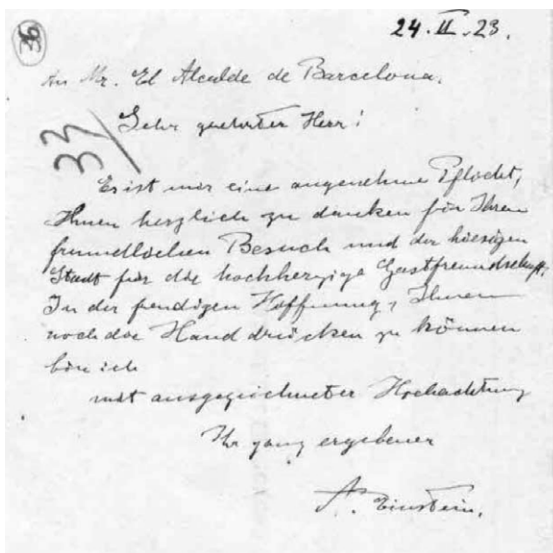 36
24.II.23.
An Mr. El Alcalde de Barcelona.
33
Sehr geehrter Herr!
Es ist mir eine angenehme Pflicht,
Ihnen herzlich zu danken für Ihren
freundlichen Besuch und der hiesigen
Stadt für die hochherzige Gastfreundschaft.
In der freudigen Hoffnung, Ihnen
noch die Hand drücken zu können
bin ich
mit ausgezeichneter Hochachtung
Ihr ganz ergebener
A. Einstein.